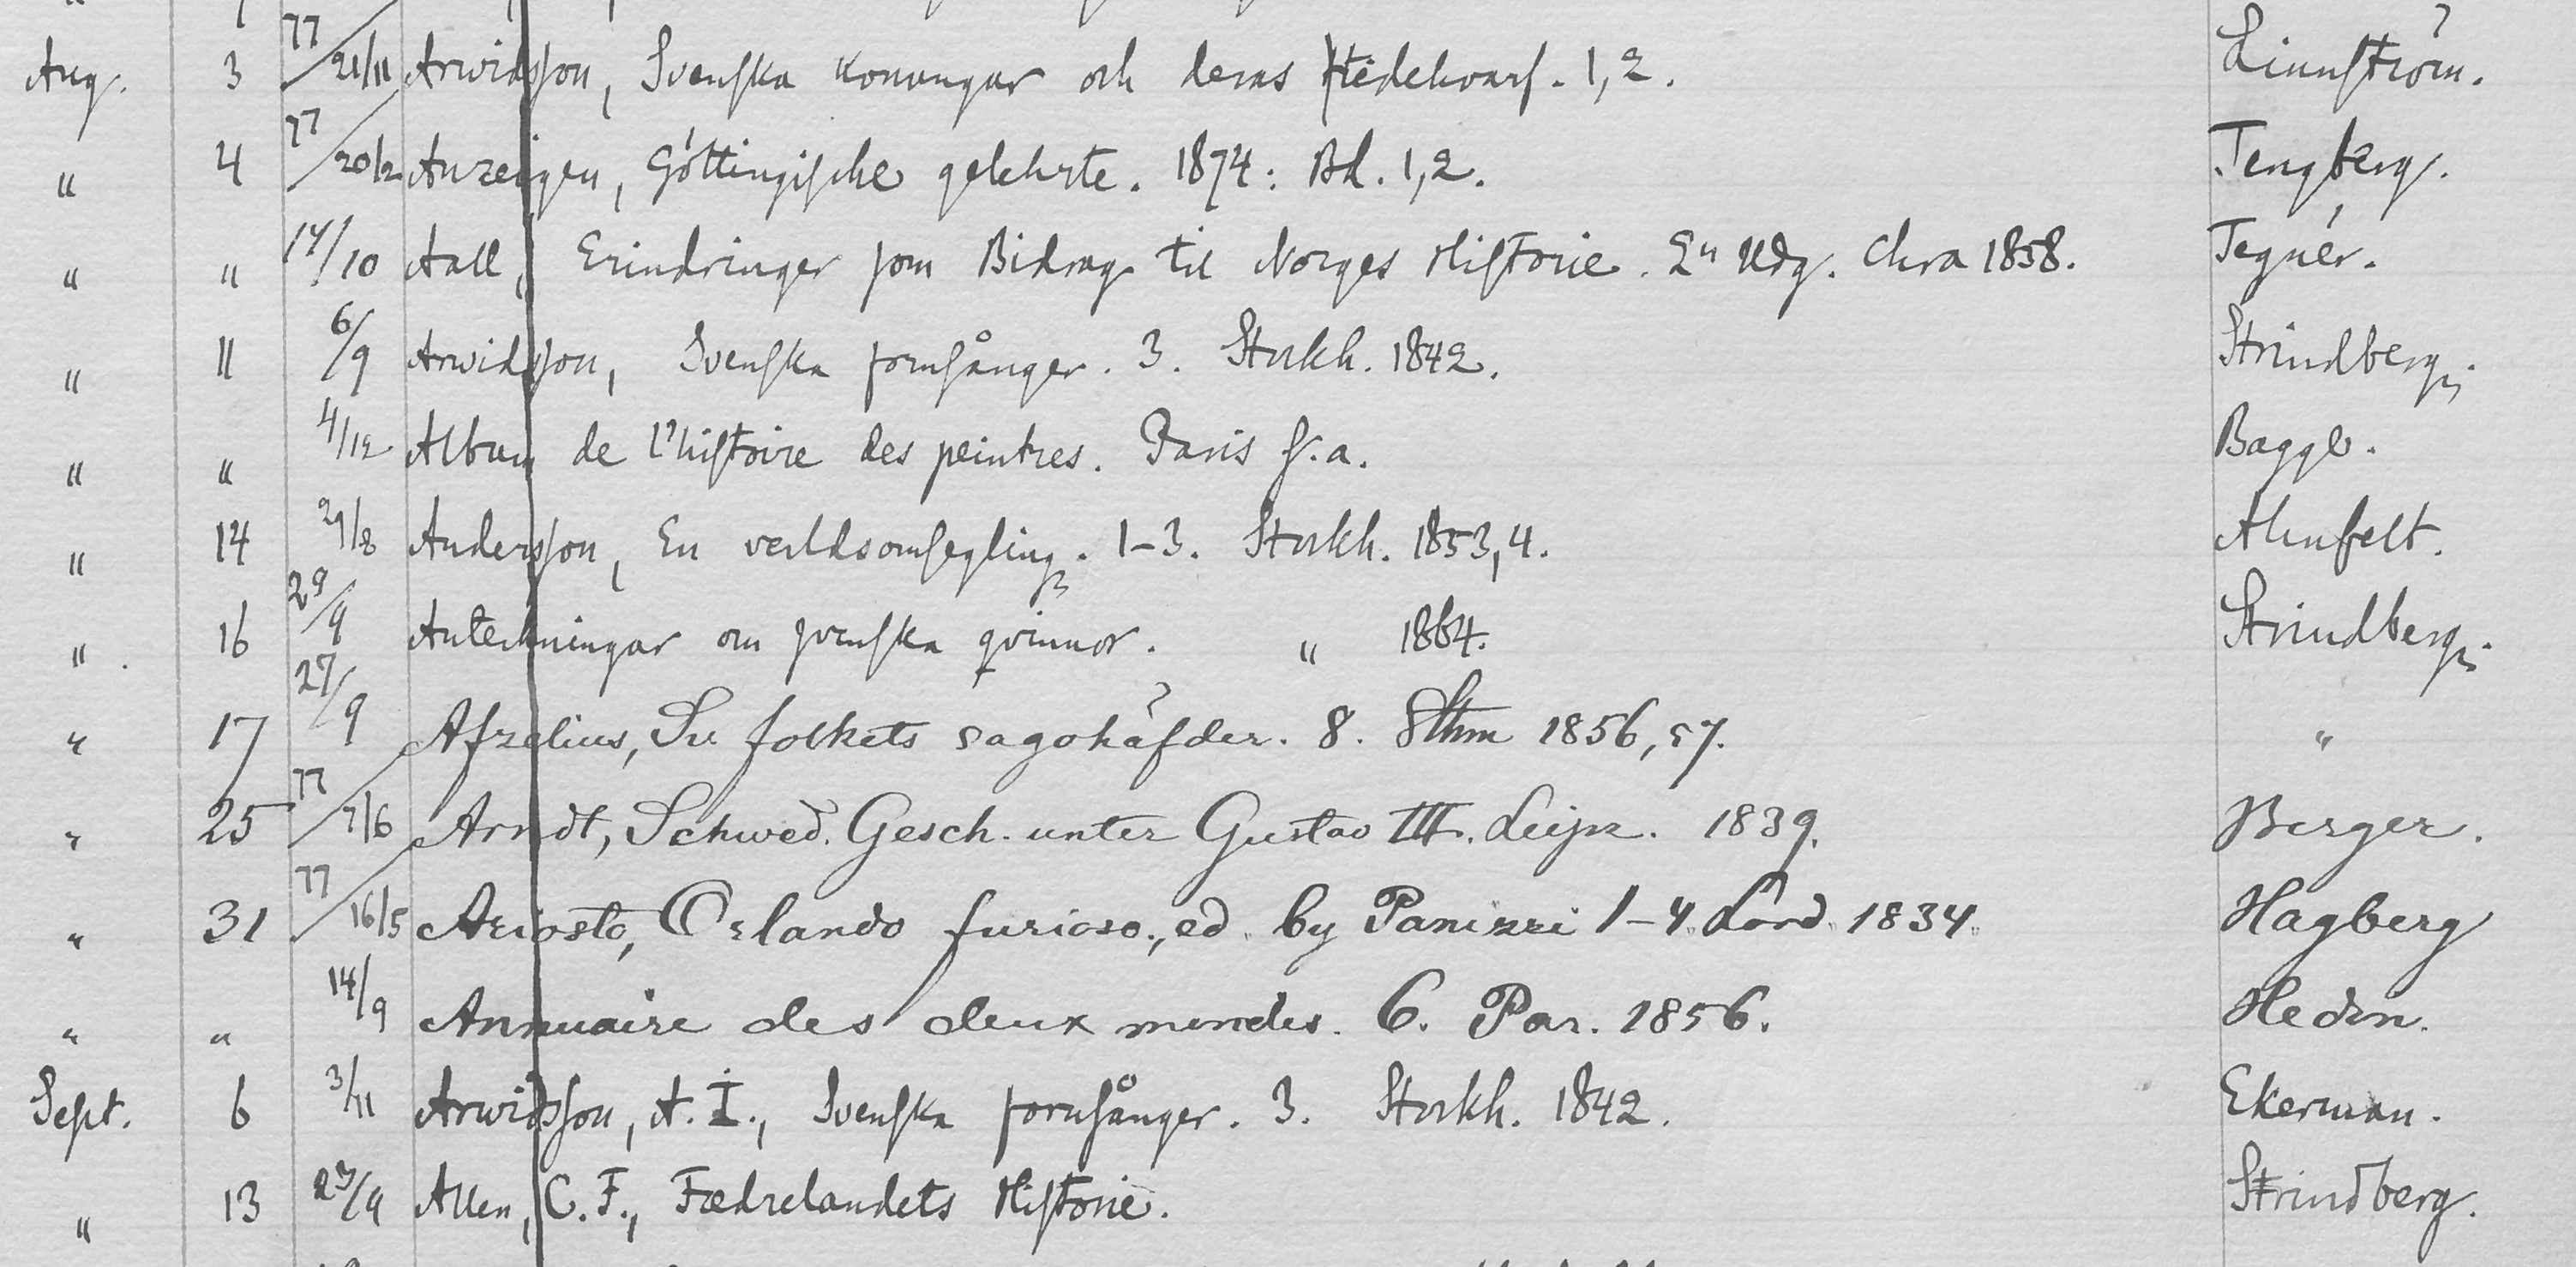 Aug. 3 77/21/11 Arwidsson, Svenska konungar och deras tidehvarf. 1,2. Linnström.
" 4 77/20/2 Anzeigen, Göttingische gelehrte. 1874: Bd. 1,2. Tengberg.
" " 14/10 Aall, Erindringer som Bidrag til Norges Historie. 2n Udg. Chra 1858. Tegnér.
" 11 6/9 Arwidsson, Svenska fornsånger. 3. Stockh. 1842. Strindberg.
" " 4/12 Album de l'histoire des peintres. Paris s.a. Bagge.
" 14 29/8 Andersson, En verldsomsegling. 1-3. Stockh. 1853,4. Ahnfelt.
" 16 29/9 Anteckningar om svenska qvinnor. " 1864. Strindberg.
" 17 27/9 Afzelius, Sv folkets sagohäfder. 8. Sthm 1856,57. "
" 25 77/7/6 Arndt, Schwed. Gesch. unter Gustav III. Leipz. 1839. Berger.
" 31 77/16/5 Ariosto, Orlando furioso., ed. by Panizzi 1-4. Lond. 1834. Hagberg
" " 14/9 Annuaire des deux mondes. 6. Par. 1856. Hedin.
Sept. 6 3/11 Arwidsson, A. I., Svenska fornsånger. 3. Stockh. 1842. Ekerman.
" 13 23/9 Allen, C. F., Fædrelandets Historie. Strindberg.